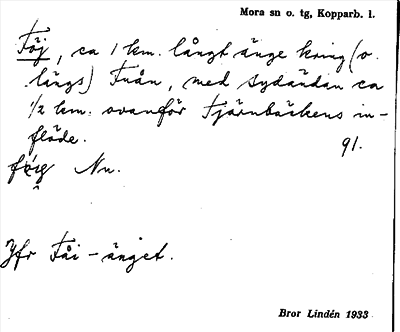 Mora sn o. tg, Kopparb. l.
Föj, ca 1 km. långt änge kring (o.
längs) Fuån, med sydändan ca
1/2 km. ovanför Tjärnbäckens in-
flöde. 91.
Nu.
Jfr Fåi-änget.
Bror Lindén 1933